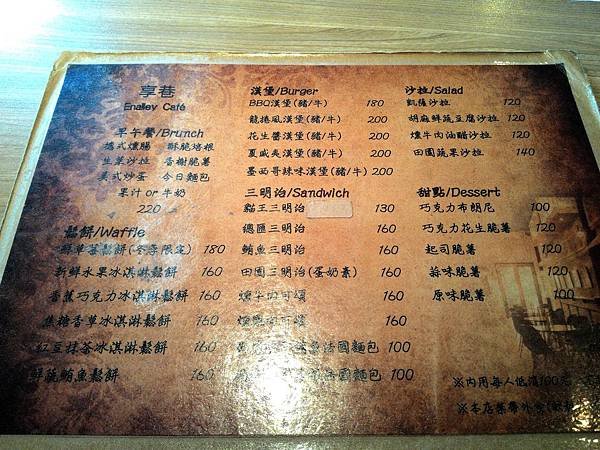 享巷
Enalley Café
早午餐/Brunch
德式燻腸 酥脆培根
生菜沙拉 香榭脆薯
美式炒蛋 今日麵包
果汁 or 牛奶
220
鬆餅/Waffle
鮮草莓鬆餅(冬季限定) 180
新鮮水果冰淇淋鬆餅 160
香蕉巧克力冰淇淋鬆餅 160
焦糖香草冰淇淋鬆餅 160
紅豆抹茶冰淇淋鬆餅 160
鮮蔬鮪魚鬆餅 160
漢堡/Burger
BBQ漢堡(豬/牛) 180
龍捲風漢堡(豬/牛) 200
花生醬漢堡(豬/牛) 200
夏威夷漢堡(豬/牛) 200
墨西哥辣味漢堡(豬/牛) 200
三明治/Sandwich
貓王三明治 130
總匯三明治 160
鮪魚三明治 160
田園三明治(蛋奶素) 160
燻牛肉可頌 160
燻雞肉可頌 160
法國麵包 100
法國麵包 100
沙拉/Salad
凱薩沙拉 120
胡麻鮮蔬豆腐沙拉 120
燻牛肉油醋沙拉 120
田園蔬果沙拉 140
甜點/Dessert
巧克力布朗尼 100
巧克力花生脆薯 120
起司脆薯 120
蒜味脆薯 120
原味脆薯 100
※內用每人低消100元
※本店禁帶外食